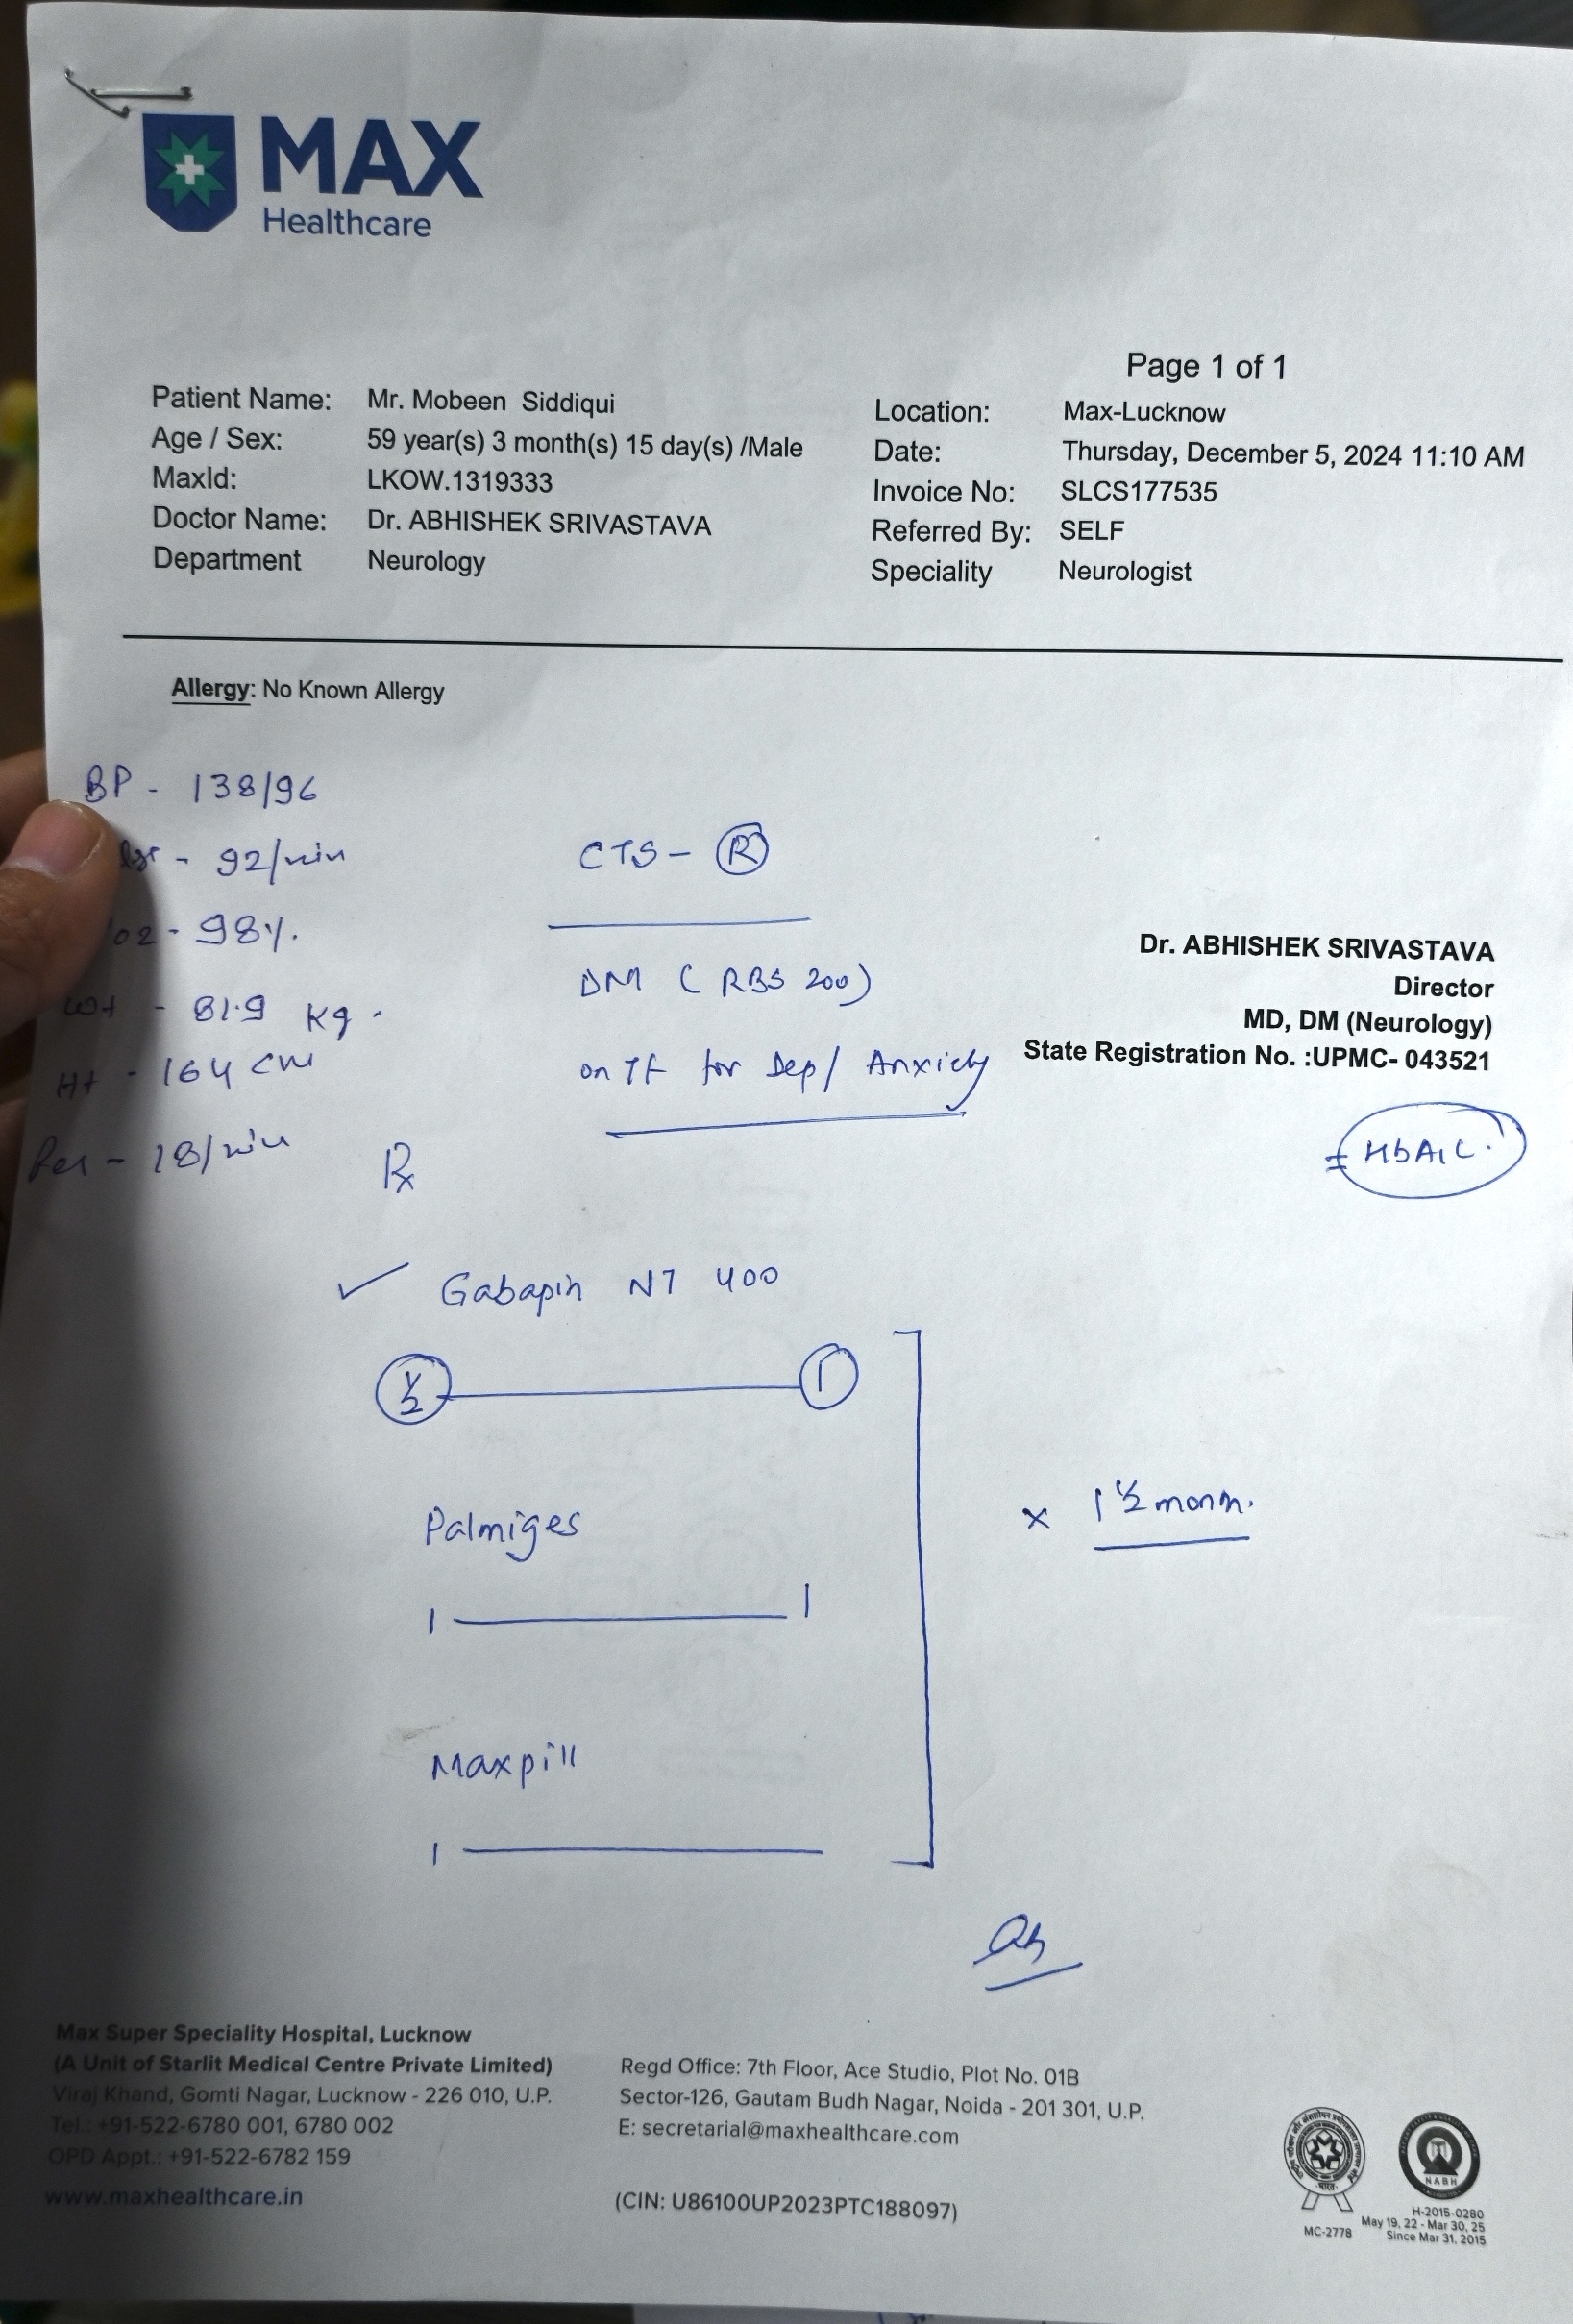 MAX
Healthcare
Page 1 of 1
Patient Name: Mr. Mobeen Siddiqui
Age / Sex: 59 year(s) 3 month(s) 15 day(s) /Male
MaxId: LKOW.1319333
Doctor Name: Dr. ABHISHEK SRIVASTAVA
Department Neurology
Location: Max-Lucknow
Date: Thursday, December 5, 2024 11:10 AM
Invoice No: SLCS177535
Referred By: SELF
Speciality Neurologist
Allergy: No Known Allergy
BP - 138/96
- 92/min
o2 - 98%.
Wt - 81.9 Kg.
Ht - 164 cm
- 18/min
CTS - R
DM ( RBS 200)
on Tt for Dep/ Anxiety
Dr. ABHISHEK SRIVASTAVA
Director
MD, DM (Neurology)
State Registration No. :UPMC- 043521
HbA1C.
Rx
✓ Gabapin NT 400
½ — 1
Palmiges
1 — 1
Maxpill
1 —
x 1 ½ month.
Max Super Speciality Hospital, Lucknow
(A Unit of Starlit Medical Centre Private Limited)
Viraj Khand, Gomti Nagar, Lucknow - 226 010, U.P.
Tel.: +91-522-6780 001, 6780 002
OPD Appt.: +91-522-6782 159
www.maxhealthcare.in
Regd Office: 7th Floor, Ace Studio, Plot No. 01B
Sector-126, Gautam Budh Nagar, Noida - 201 301, U.P.
E: secretarial@maxhealthcare.com
(CIN: U86100UP2023PTC188097)
MC-2778
NABH
H-2015-0280
May 19, 22 - Mar 30, 25
Since Mar 31, 2015